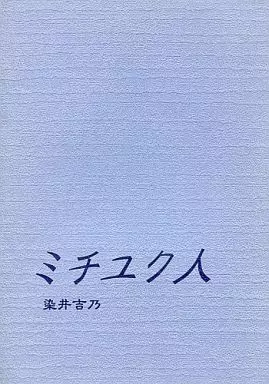 ミチユク人
染井吉乃